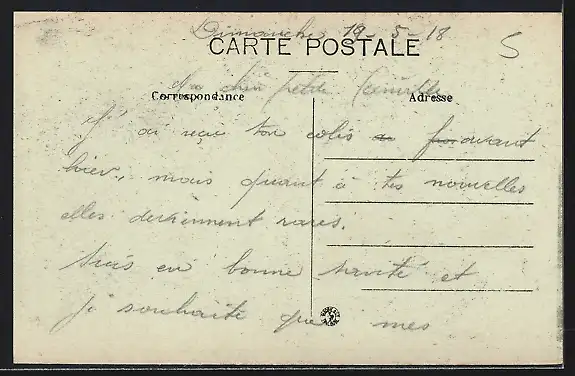 Dimanche 19-5-18
CARTE POSTALE
5
Ma chère petite Camille
Correspondance
Adresse
J'ai reçu ton colis avant
hier, mais quant à tes nouvelles
elles deviennent rares.
Suis en bonne santé et
je souhaite que mes